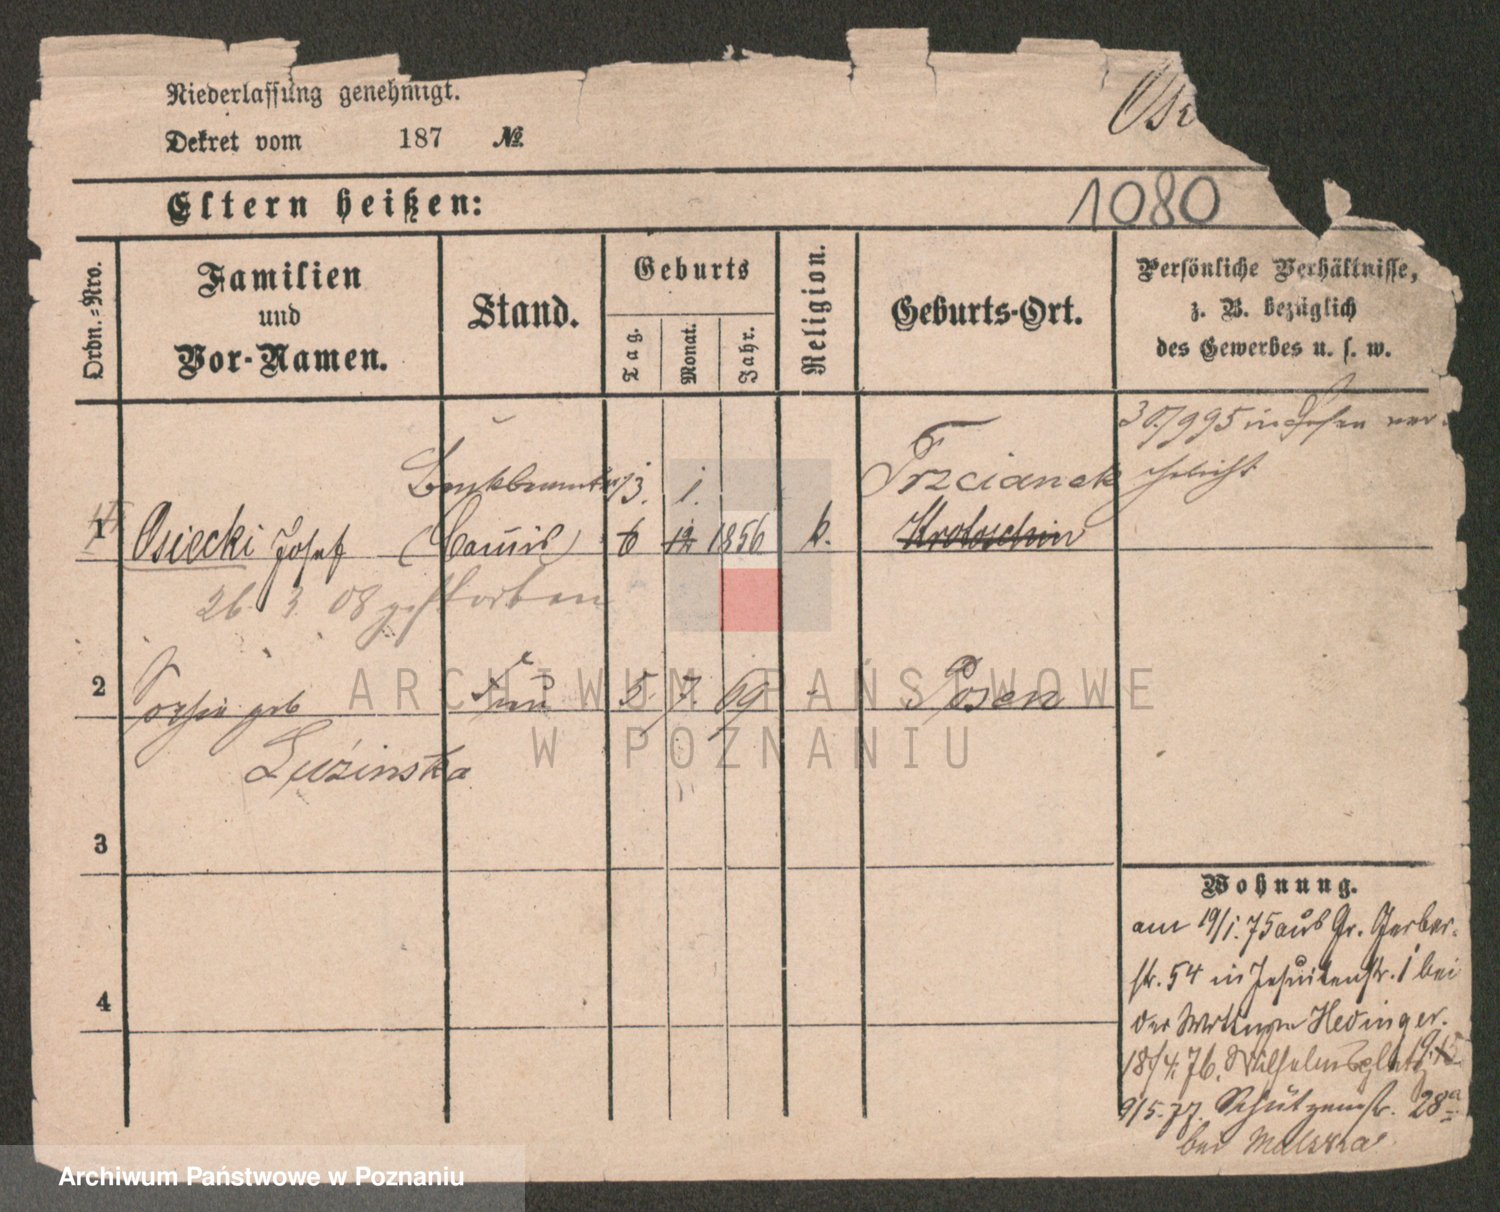 Niederlassung genehmigt.
Dekret vom 187 №
1080
Eltern heißen:
Ordn.=Nro.
Familien
und
Vor-Namen.
Stand.
Geburts
Tag.
Monat.
Jahr.
Religion.
Geburts-Ort.
Persönliche Verhältnisse,
z. B. bezüglich
des Gewerbes u. s. w.
30./9 95 in Posen ver-
ehelicht
13. 1. Trzcianek
1 Osiecki Josef (Commis) 6 12 1856 k. Krotoschin
26. 3. 08 gestorben
2 Sophie geb Frau 5 7. 69 Posen
Luzinska
3
4
Wohnung.
am 19/1. 75 aus Gr. Gerber-
str. 54 in Jesuitenstr. 1 bei
der Hedinger.
18/4. 76. Wilhelmsplatz
9/5. 77. Schützenstr. 28a
bei
ARCHIWUM PAŃSTWOWE
W POZNANIU
Archiwum Państwowe w Poznaniu